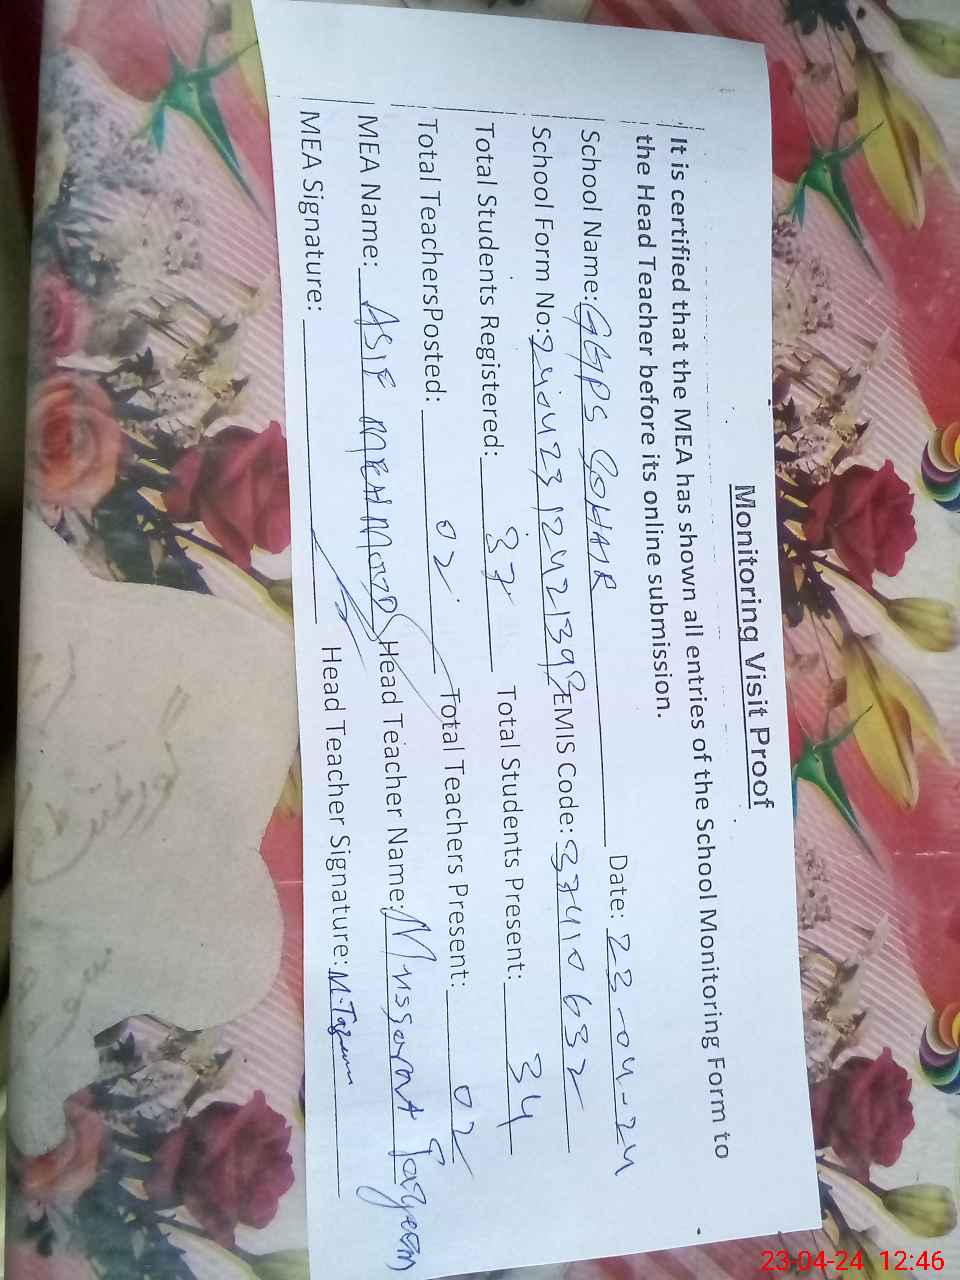 Monitoring Visit Proof
It is certified that the MEA has shown all entries of the School Monitoring Form to
the Head Teacher before its online submission.
School Name: GGPS SOHAIR Date: 23-04-24
School Form No: EMIS Code: 33410632
Total Students Registered: 37 Total Students Present: 34
Total TeachersPosted: 02 Total Teachers Present: 02
MEA Name: ASIF MEHMOOD Head Teacher Name: Mussarat Tasneem
MEA Signature: Head Teacher Signature: M.
23-04-24 12:46